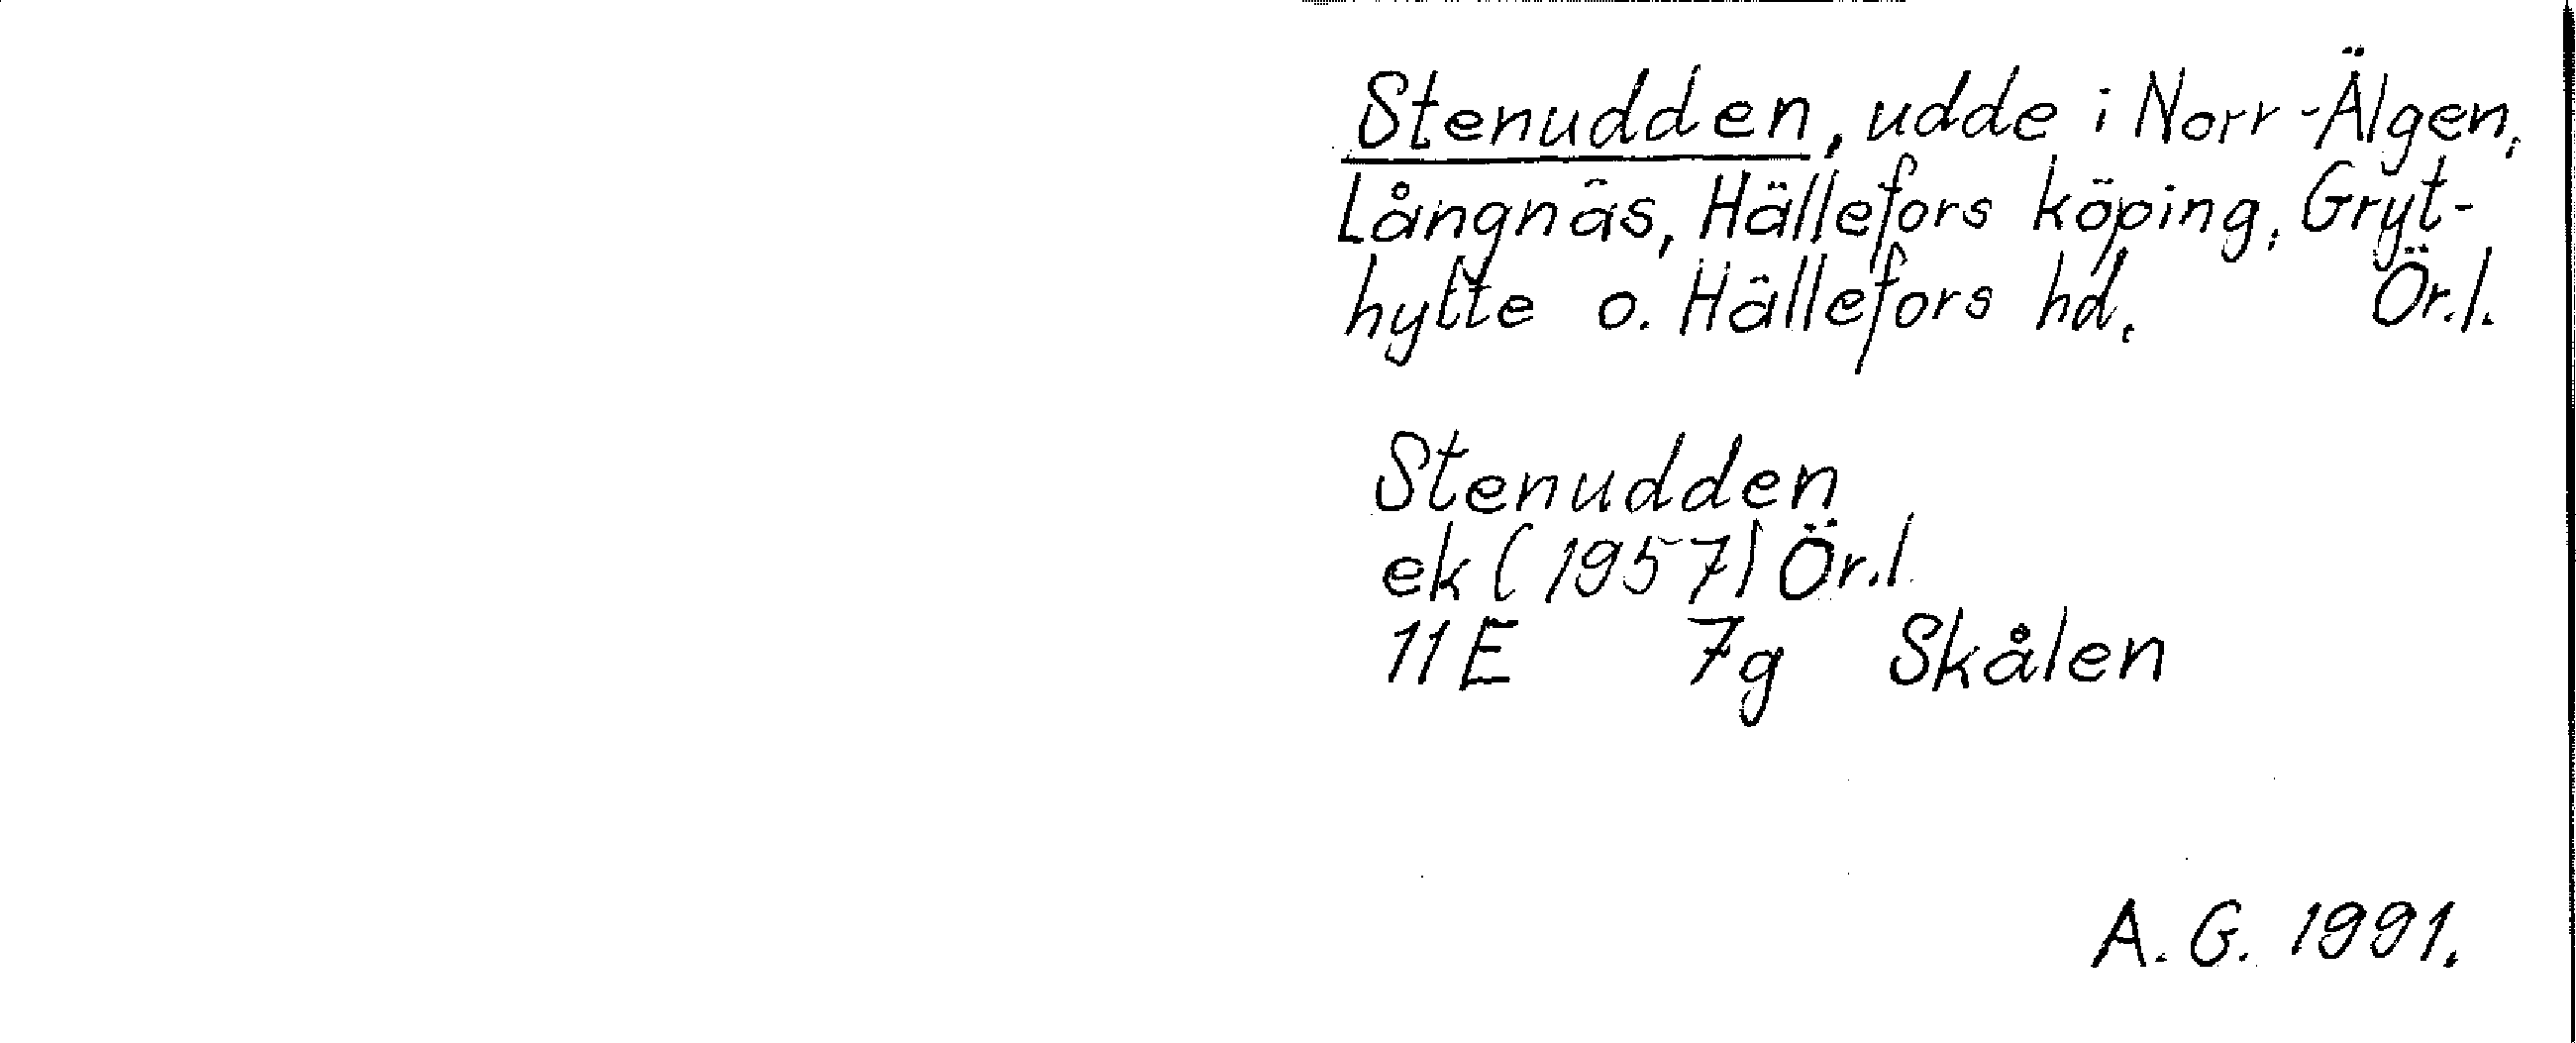 Stenudden, udde i Norr-Älgen,
Långnäs, Hällefors köping, Gryt-
hytte o. Hällefors hd. Ör.l.
Stenudden
ek (1957) Ör.l.
11E 7g Skålen
A. G. 1991.